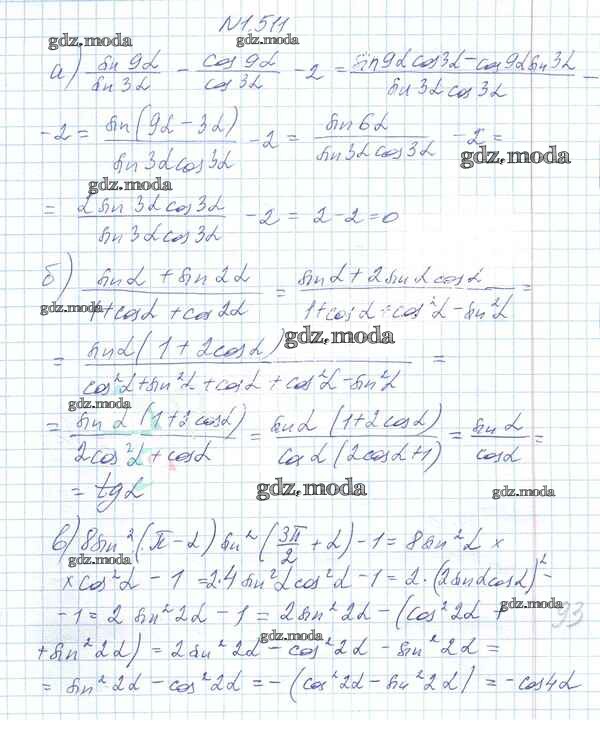 N1.511
gdz.moda
а) sin 9α / sin 3α − cos 9α / cos 3α − 2 = (sin 9α cos 3α − cos 9α sin 3α) / (sin 3α cos 3α) −
− 2 = sin(9α − 3α) / (sin 3α cos 3α) − 2 = sin 6α / (sin 3α cos 3α) − 2 =
gdz.moda
gdz.moda
= 2 sin 3α cos 3α / (sin 3α cos 3α) − 2 = 2 − 2 = 0
gdz.moda
б) (sin α + sin 2α) / (1 + cos α + cos 2α) = (sin α + 2 sin α cos α) / (1 + cos α + cos²α − sin²α) =
gdz.moda
gdz.moda
= sin α (1 + 2cos α) / (cos²α + sin²α + cos α + cos²α − sin²α) =
gdz.moda
= sin α (1 + 2cos α) / (2cos²α + cos α) = sin α (1 + 2cos α) / (cos α (2cos α + 1)) = sin α / cos α =
gdz.moda
= tg α
gdz.moda
gdz.moda
в) 8 sin²(π − α) sin²(3π/2 + α) − 1 = 8 sin²α ×
× cos²α − 1 = 2·4 sin²α cos²α − 1 = 2·(2 sin α cos α)² −
gdz.moda
− 1 = 2 sin²2α − 1 = 2 sin²2α − (cos²2α +
93
gdz.moda
+ sin²2α) = 2 sin²2α − cos²2α − sin²2α =
= sin²2α − cos²2α = −(cos²2α − sin²2α) = −cos 4α